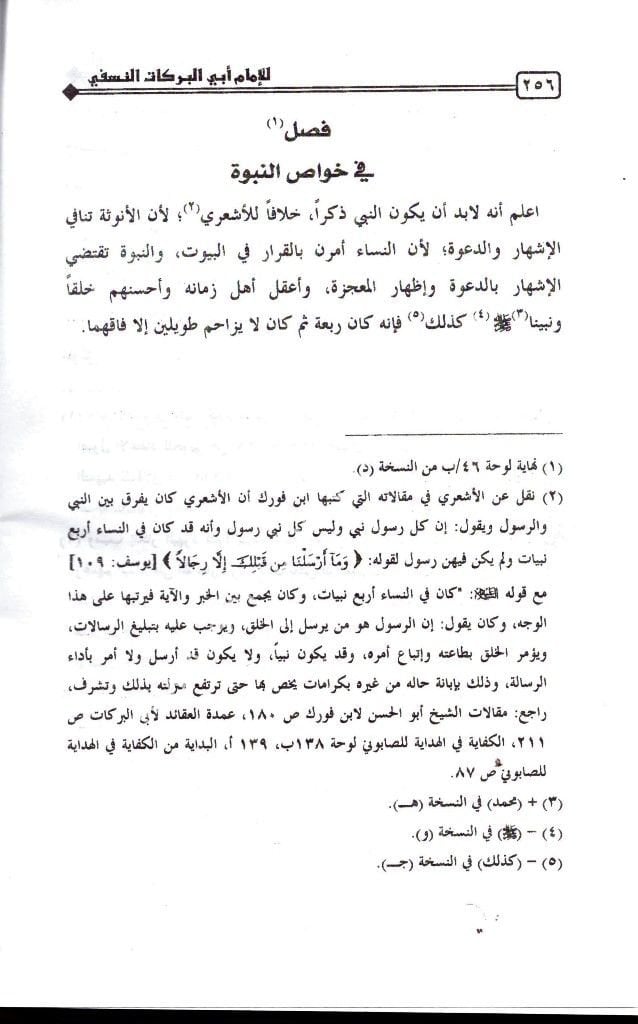 ٢٥٦ للإمام أبي البركات النسفي
فصل(١)
في خواص النبوة
اعلم أنه لابد أن يكون النبي ذكراً، خلافاً للأشعري(٢)؛ لأن الأنوثة تنافي
الإشهار والدعوة؛ لأن النساء أمرن بالقرار في البيوت، والنبوة تقتضي
الإشهار بالدعوة وإظهار المعجزة، وأعقل أهل زمانه وأحسنهم خلقاً
ونبينا(٣)ﷺ(٤) كذلك(٥) فإنه كان ربعة ثم كان لا يزاحم طويلين إلا فاقهما.
(١) نهاية لوحة ٤٦/ب من النسخة (د).
(٢) نقل عن الأشعري في مقالاته التي كتبها ابن فورك أن الأشعري كان يفرق بين النبي
والرسول ويقول: إن كل رسول نبي وليس كل نبي رسول وأنه قد كان في النساء أربع
نبيات ولم يكن فيهن رسول لقوله: ﴿ وَمَآ أَرْسَلْنَا مِن قَبْلِكَ إِلَّا رِجَالًا ﴾ [يوسف: ١٠٩]
مع قوله ﷺ: "كان في النساء أربع نبيات، وكان يجمع بين الخبر والآية فيرتبها على هذا
الوجه، وكان يقول: إن الرسول هو من يرسل إلى الخلق، ويوجب عليه بتبليغ الرسالات،
ويؤمر الخلق بطاعته وإتباع أمره، وقد يكون نبياً، ولا يكون قد أرسل ولا أمر بأداء
الرسالة، وذلك بإبانة حاله من غيره بكرامات يخص بها حتى ترتفع منزلته بذلك وتشرف،
راجع: مقالات الشيخ أبو الحسن لابن فورك ص ١٨٠، عمدة العقائد لأبي البركات ص
٢١١، الكفاية في الهداية للصابوني لوحة ١٣٨ب، ١٣٩ أ، البداية من الكفاية في الهداية
للصابوني ص ٨٧.
(٣) + (محمد) في النسخة (هـ).
(٤) – (ﷺ) في النسخة (و).
(٥) – (كذلك) في النسخة (جـ).